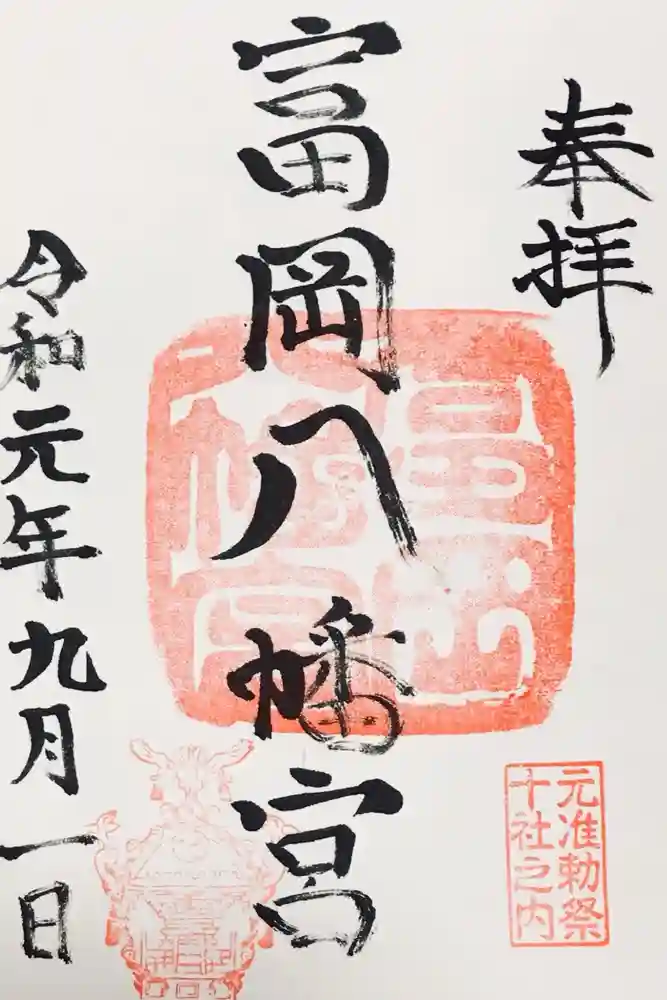 奉拝
元准勅祭
十社之内
富岡八幡宮
令和元年九月一日